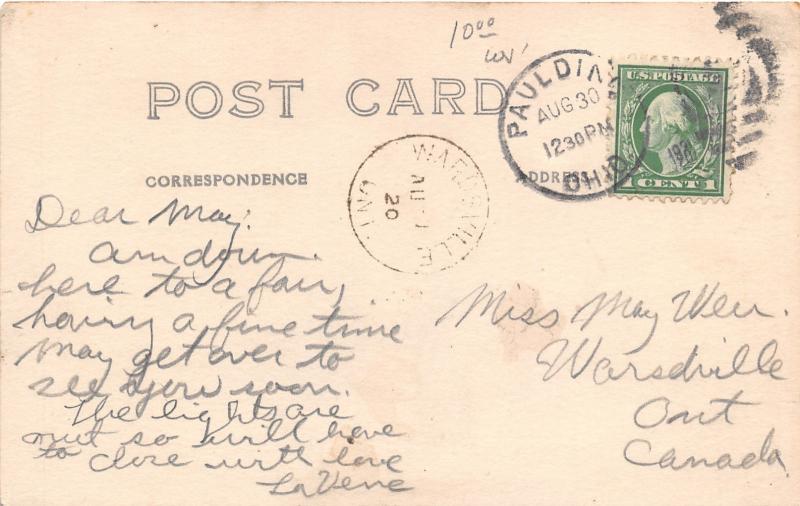 10⁰⁰
POST CARD
PAULDING
AUG 30
12 30 PM
OHIO
U.S. POSTAGE
1 CENT 1
WARDSVILLE
AU
20
ONT
CORRESPONDENCE
ADDRESS
Dear May:
Am down
here to a fair,
having a fine time
May get over to
see you soon.
The lights are
out so will have
to close with love
LaVerne
Miss May Weir.
Warsdville
Ont
Canada.